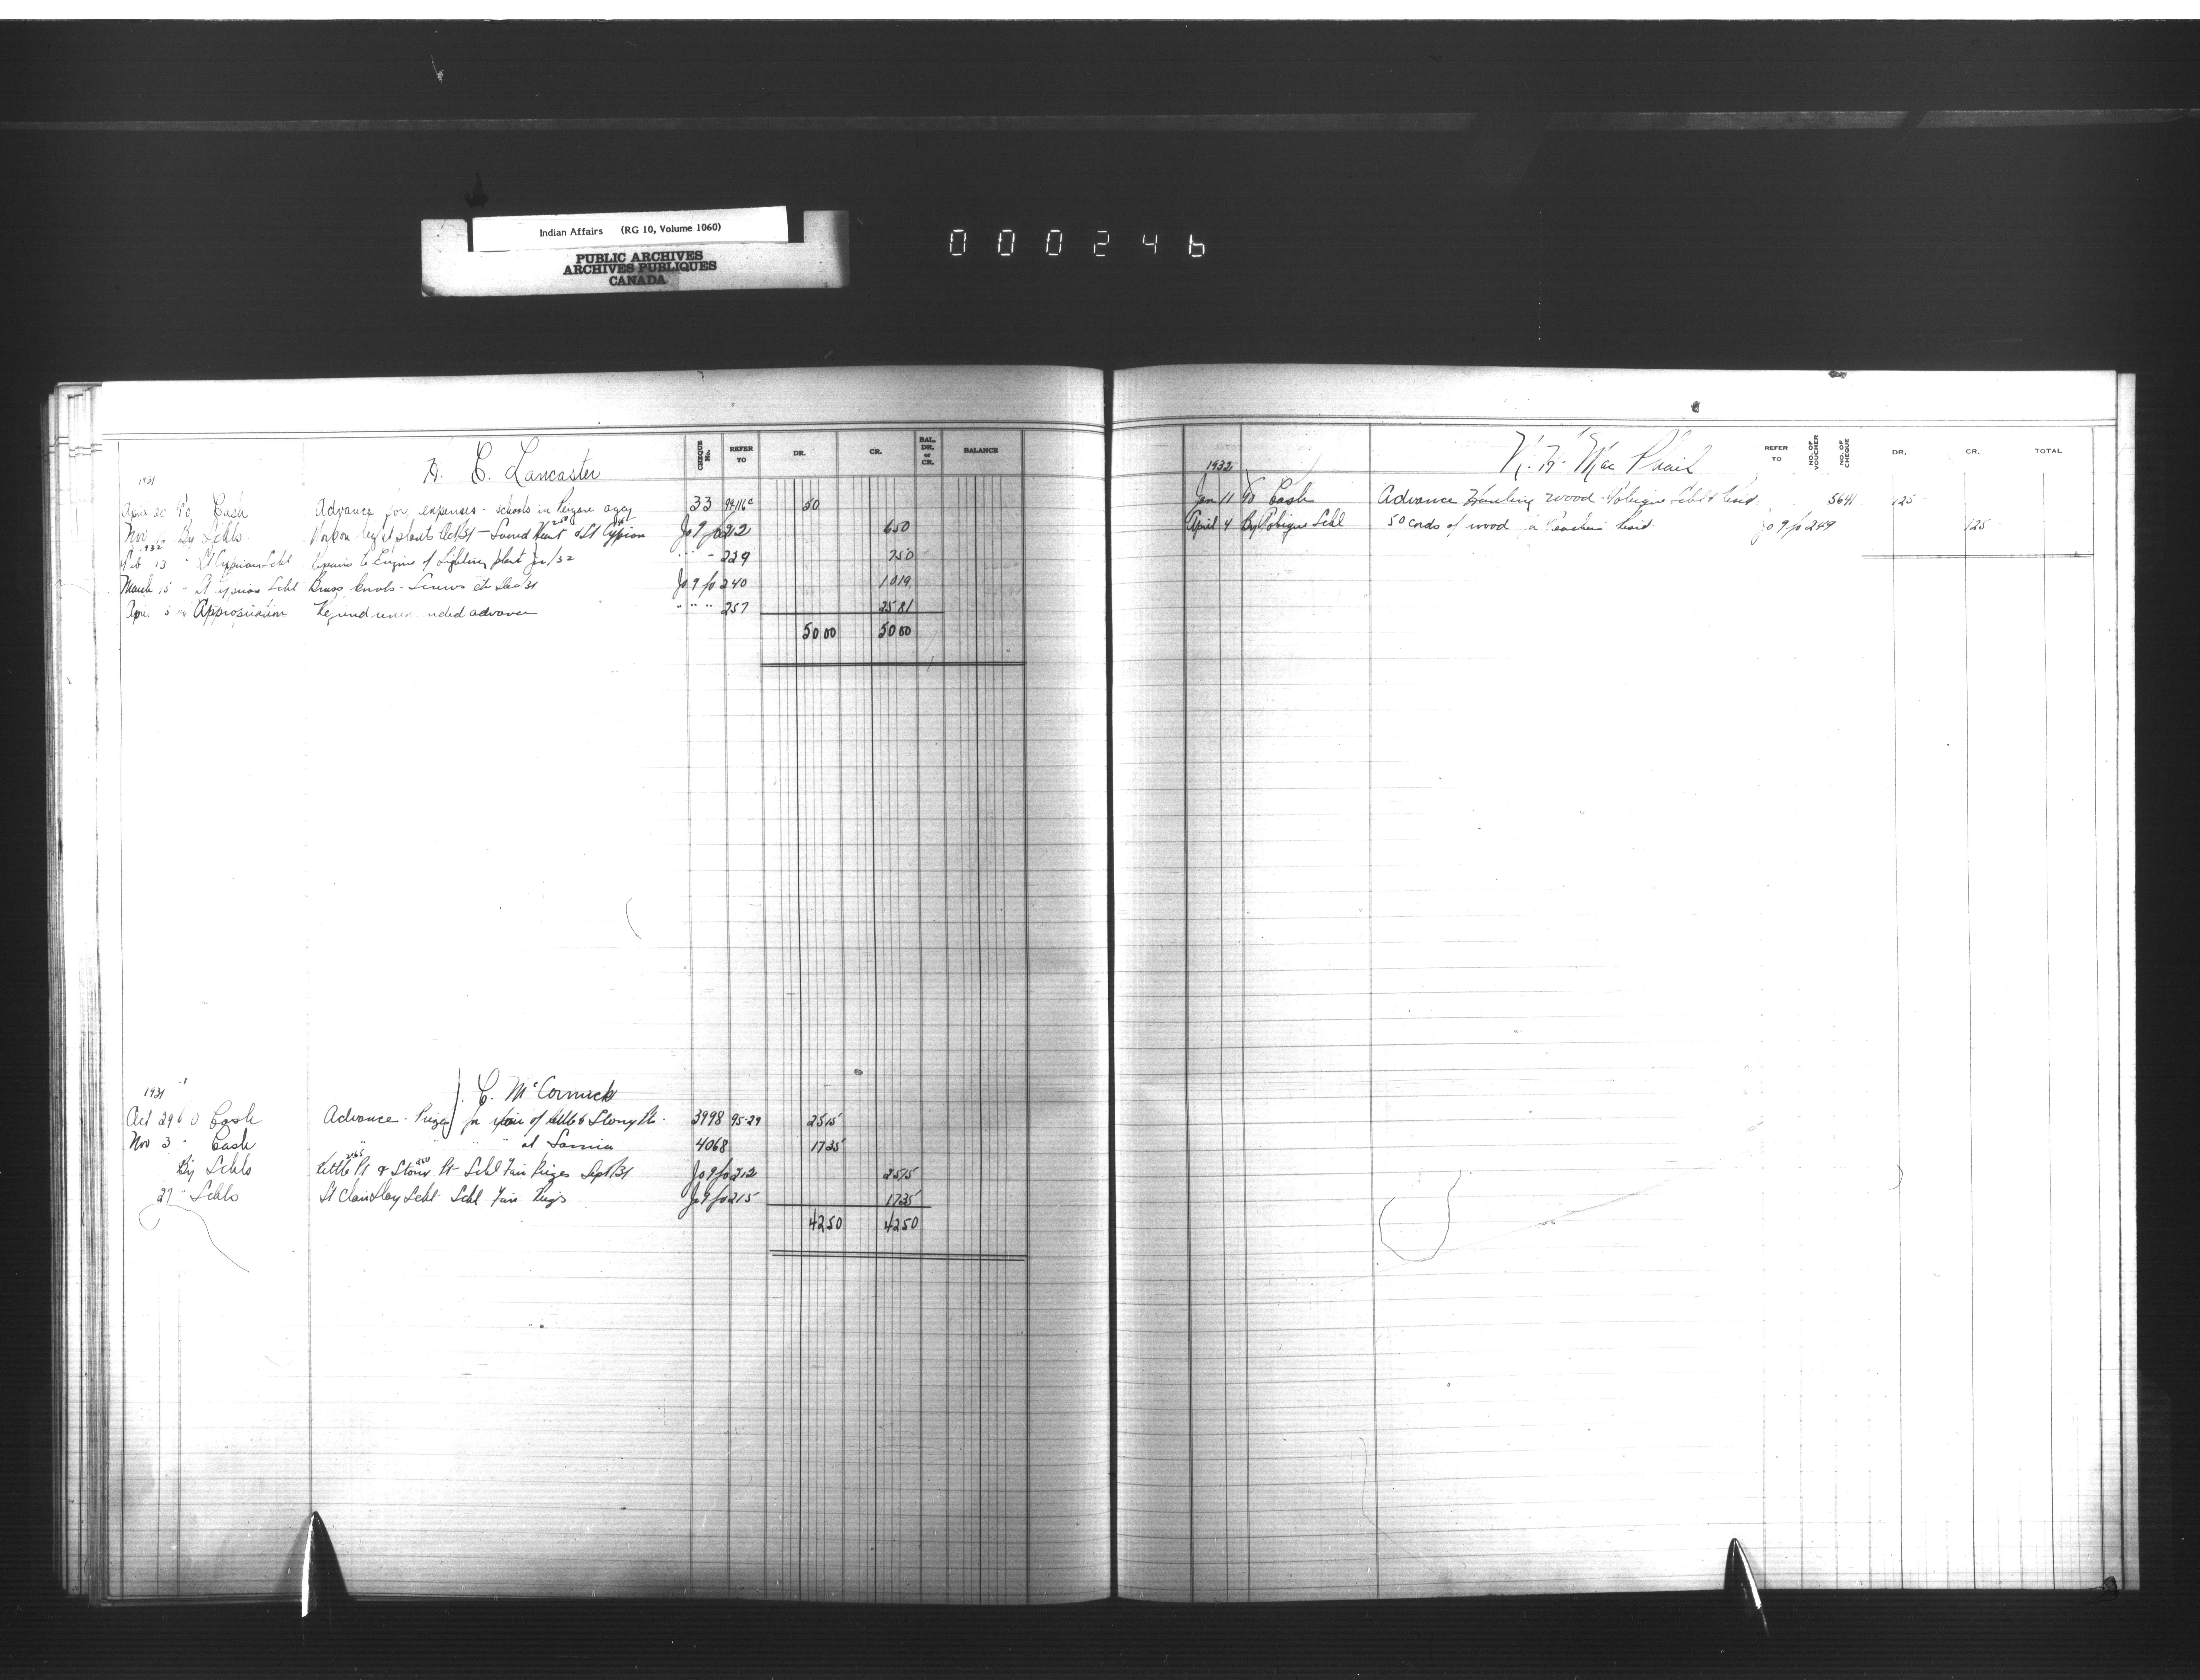 Indian Affairs (RG 10, Volume 1060)
PUBLIC ARCHIVES
ARCHIVES PUBLIQUES
CANADA
000246
CHEQUE No. REFER TO DR. CR. BAL. DR. or CR. BALANCE
H. E. Lancaster
1931
April 20 To Cash Advance for expenses - schools in Peigan agcy 33 94-116c 50
Nov By Schls Work on light plants Oct/31 - Sacred Heart & St Cyprian Jo 9 fo 212 650
1932
Feb 13 " St Cyprian Schl Repairs to Engine of Lighting plant Jan/32 " " - 229 750
March 15 - St Cyprian Schl Brass knobs - Screws etc Dec/31 Jo 9 fo 240 1019
April 5 Appropriation Refund advance " " " 257 2581
5000 5000
C. McCormick
1931
Oct 29 To Cash Advance - Prizes for of Kettle & Stony Pt. 3998 95-29 2515
Nov 3 " Cash " " " at Sarnia 4068 1735
By Schls Kettle Pt & Stony Pt - Schl Fair Prizes Sept/31 Jo 9 fo 212 2515
27 " Schls St Clair Schl. Schl Fair Jo 9 fo 215 1735
4250 4250
REFER TO NO. OF VOUCHER NO. OF CHEQUE DR. CR. TOTAL
Mac Phail
1932
Jan 11 To Cash Advance Hauling wood - Tobique Schl & Resid. 5641 125 -
April 4 By Tobique Schl 50 cords of wood Teachers Resid. Jo 9 fo 249 125